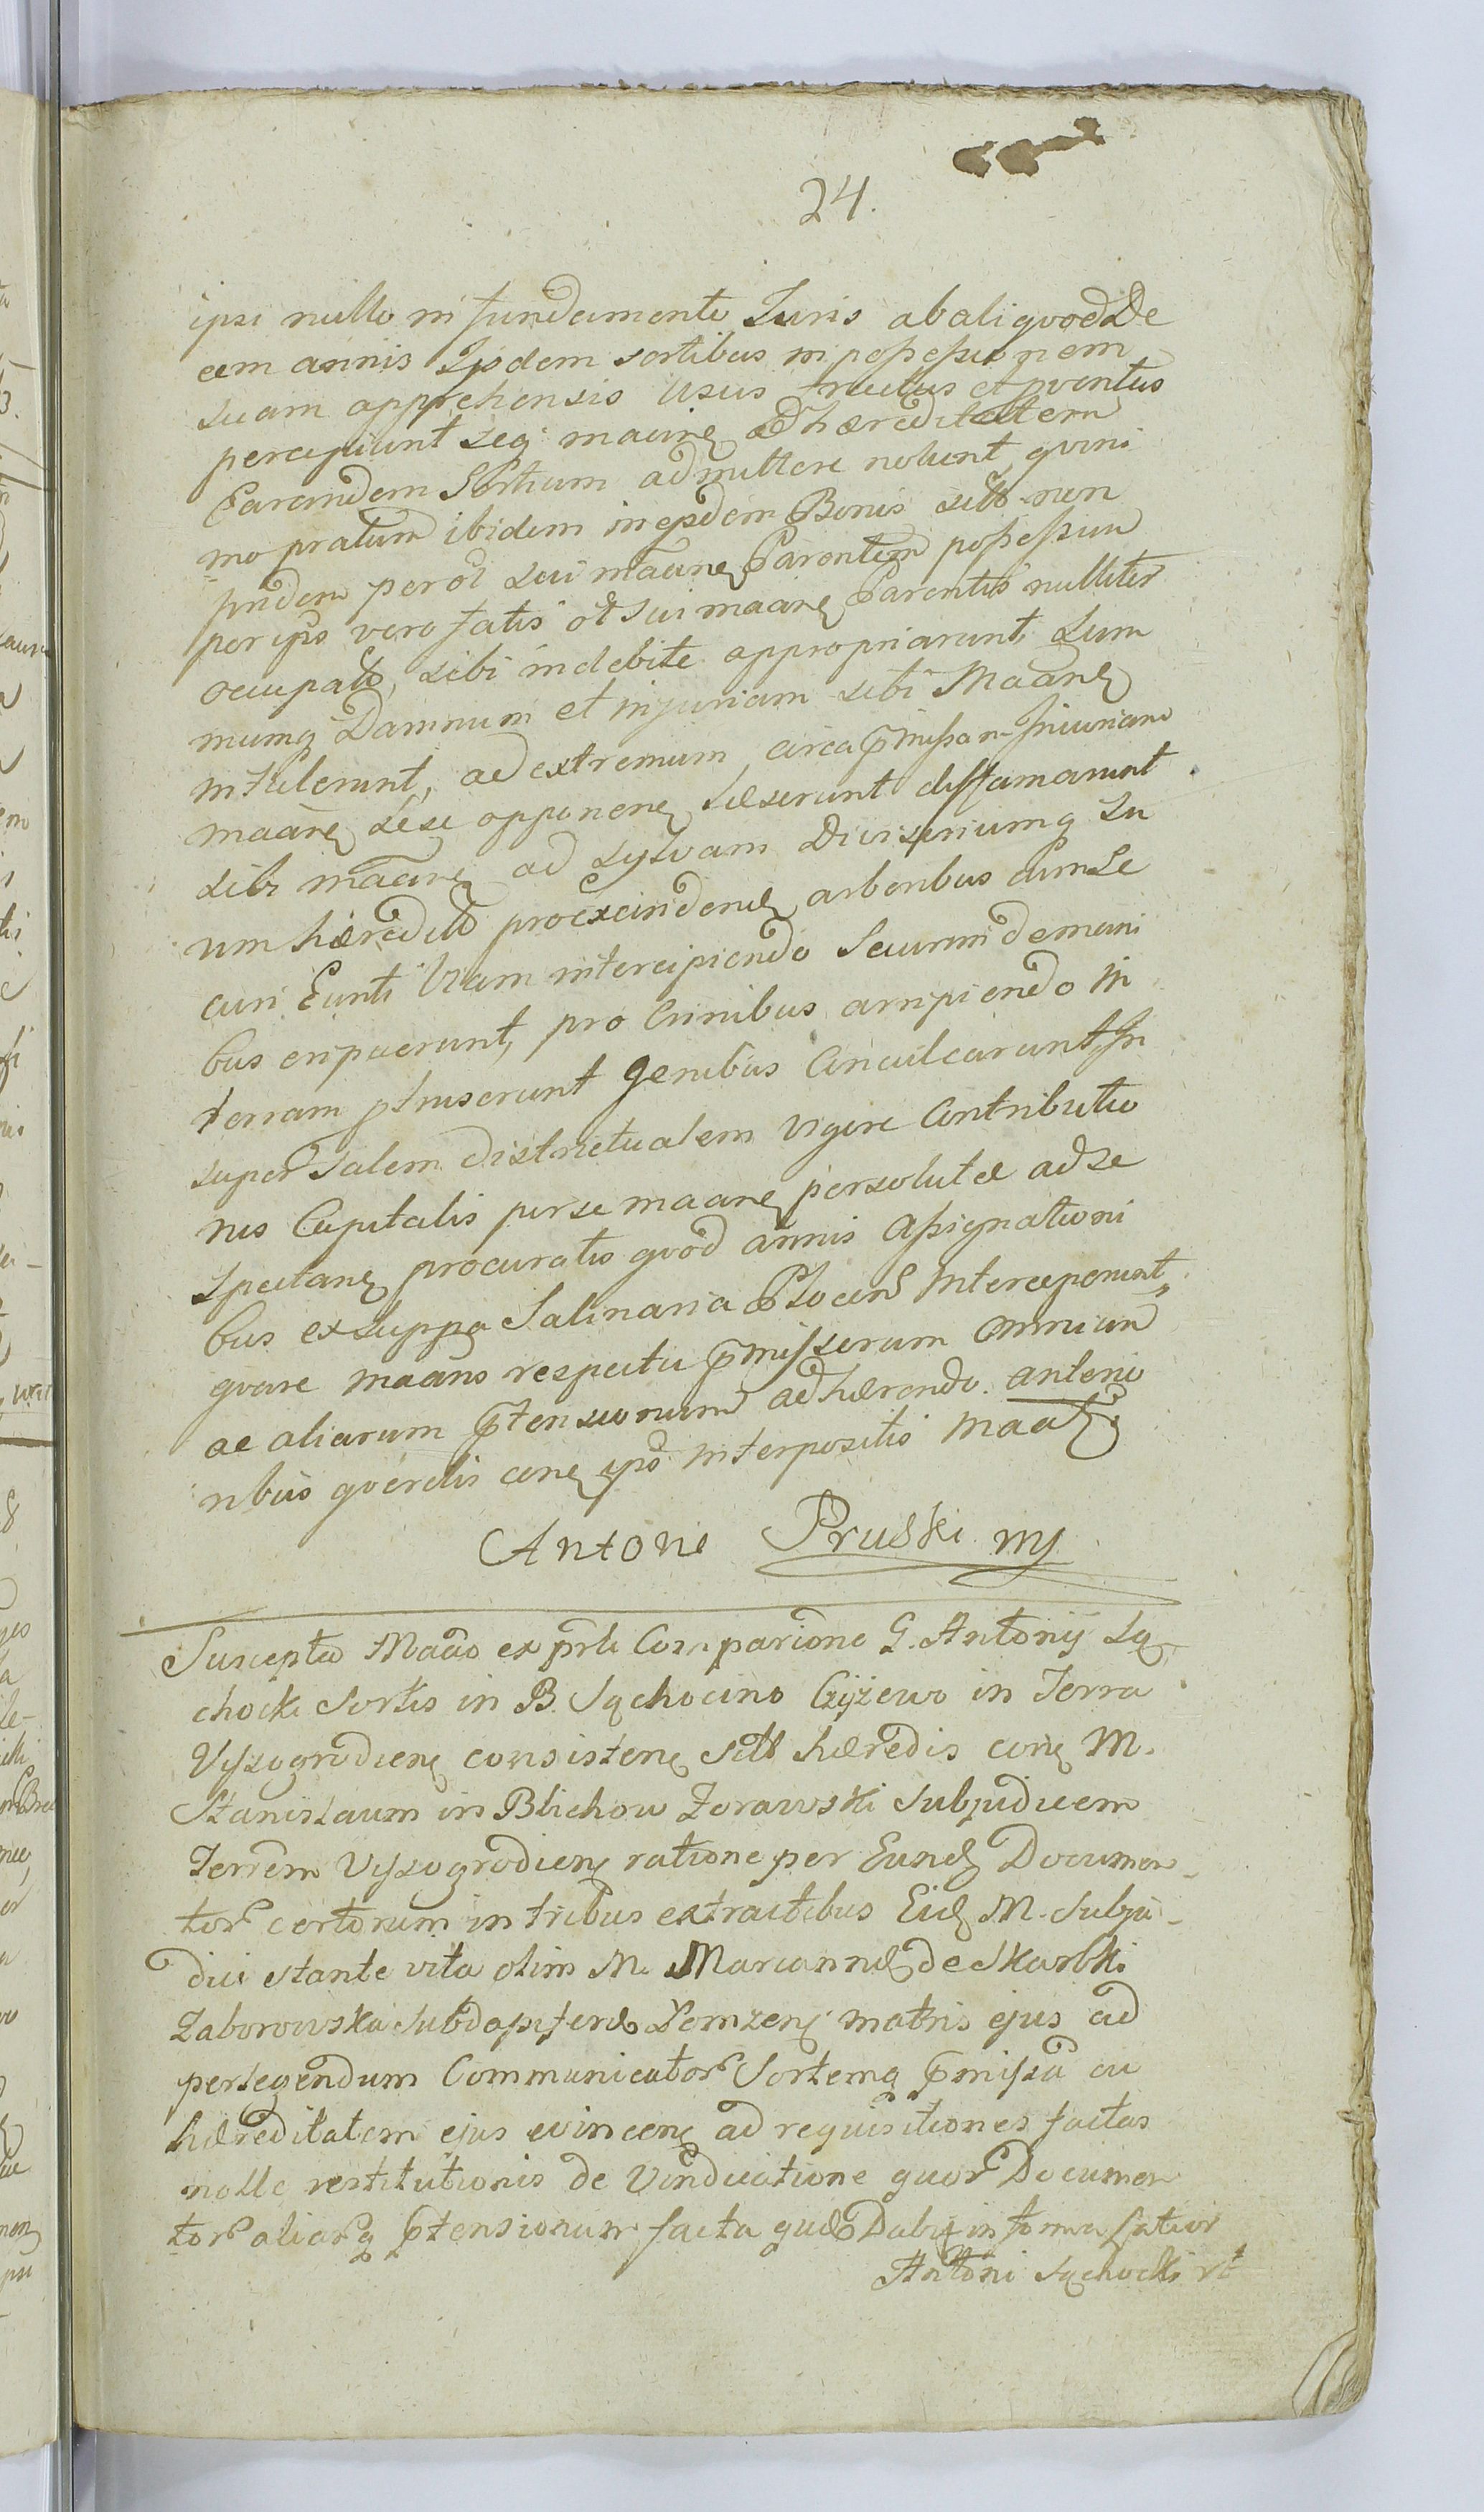 24.
ipsi nullo in fundamento Juris ab aliquod De
cem annis Ijsdem sortibus in possessionem
suam apprehensis usus fructus et pventus
percipiunt seq maane ad hæreditatem
Earundem Sortium admittere nolunt, quini
mo pratum ibidem in ijsdem Bonis sito non
pridem per ol sui maane Parentem possessum
per ipso vero fatis ol sui maane Parentis nulliter
occupato, sibi indebite appropriarunt Sum
mumq Damnum et injuriam sibi Maane
intulerunt, ad extremum, circa pmissam Iniuriam
maane sese opponene læserunt diffamarunt
sibi maane ad Sylvam Divisoriumq Su
um hæredito pro excindend arboribus cum Se
curi Eunti Viam intercipiendo Securim de mani
bus eripuerunt, pro Crinibus arripiendo in
terram ptruserunt genibus Conculcarunt, In
super Salem districtualem vigore Contributio
nis Capitalis per se maane persolutæ ad se
spectane procuratis quod annis Assignationi
bus ex Suppa Salinaria Plocens Interceperunt,
quare maans respectu pmissorum omnium
ac aliarum ptensionum adhærendo anterio
ribus querelis cone ipso interpositis Maat
Antoni Pruski mp
Suscepta Maao ex prli Comparione G. Antonij Są
chocki Sortis in B. Sąchocino Czyżewo in Terra
Vyszogrodiene consistene Sitt hæredis cone M.
Stanislaum in Blichow Zorawski Subjudicem
Terrem Vyszogrodiene ratione per Eund Documen
tor certorum in tribus extractibus Eid M. Subju
dici stante vita olim M. Mariannæ de Skarbki
Zaborowska Subdapiferæ Lomzene matris ejus ad
perlegendum Communicator Sortemq pmissa cu
hæreditatem ejus evincene ad requisitiones factas
nolle restitutionis de Vindicatione quor Documen
tor aliarq ptensionum facta quæ Dabit in forma latior
Antoni Sąchocki